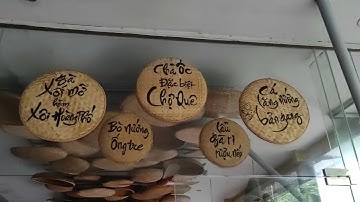 Gà
Xôi mỡ
kèm
Xôi Hoàng Phố
Bò nướng
Ống tre
Chả ốc
Đặc biệt
Chợ Quê
Lẩu
gà ri
rượu nếp
Cá
tầng nướng
bản giang